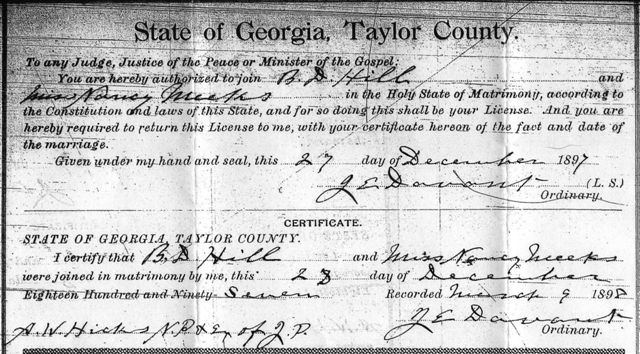 State of Georgia, Taylor County.
To any Judge, Justice of the Peace or Minister of the Gospel:
You are hereby authorized to join B D Hill and
Miss Nancy Meeks in the Holy State of Matrimony, according to
the Constitution and laws of this State, and for so doing this shall be your License. And you are
hereby required to return this License to me, with your certificate hereon of the fact and date of
the marriage.
Given under my hand and seal, this 27 day of December 1897
J E Davant (L. S.)
Ordinary.
CERTIFICATE.
STATE OF GEORGIA, TAYLOR COUNTY.
I certify that B D Hill and Miss Nancy Meeks
were joined in matrimony by me, this 28 day of December
Eighteen Hundred and Ninety-Seven Recorded March 9 1898
J E Davant
A. W. Hicks N.P. & Ex of J.P. Ordinary.